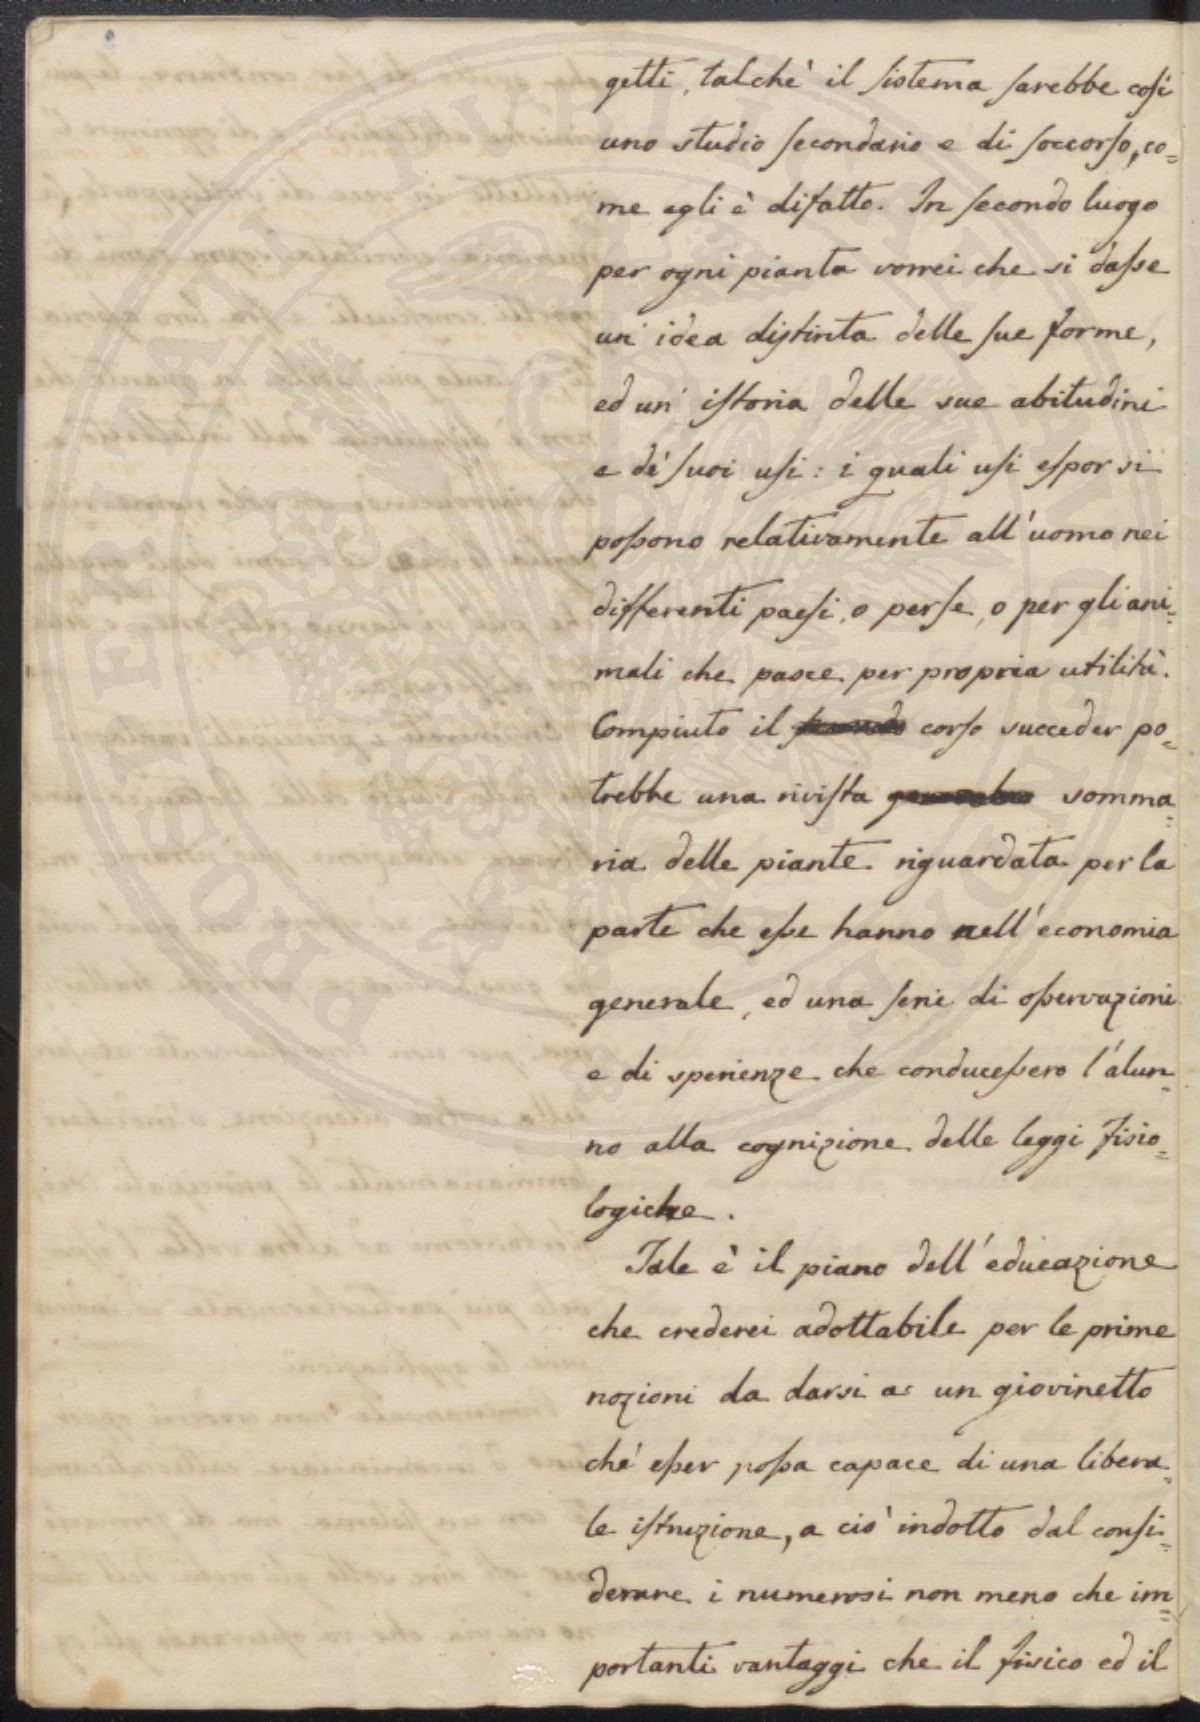 getti, talchè il sistema sarebbe così
uno studio secondario e di soccorso, co=
me egli è difatto. In secondo luogo
per ogni pianta vorrei che si dasse
un' idea distinta delle sue forme,
ed un' istoria delle sue abitudini
e de' suoi usi: i quali usi espor si
possono relativamente all' uomo nei
differenti paesi, o per se, o per gli ani=
mali che pasce per propria utilità.
Compiuto il corso succeder po=
trebbe una rivista somma=
ria delle piante riguardata per la
parte che esse hanno nell' economia
generale, ed una serie di osservazioni
e di sperienze che conducessero l' alun=
no alla cognizione delle leggi fisio=
logiche.
Tale è il piano dell' educazione
che crederei adottabile per le prime
nozioni da darsi a un giovinetto
che esser possa capace di una libera=
le istruzione, a ciò indotto dal consi=
derare i numerosi non meno che im=
portanti vantaggi che il fisico ed il